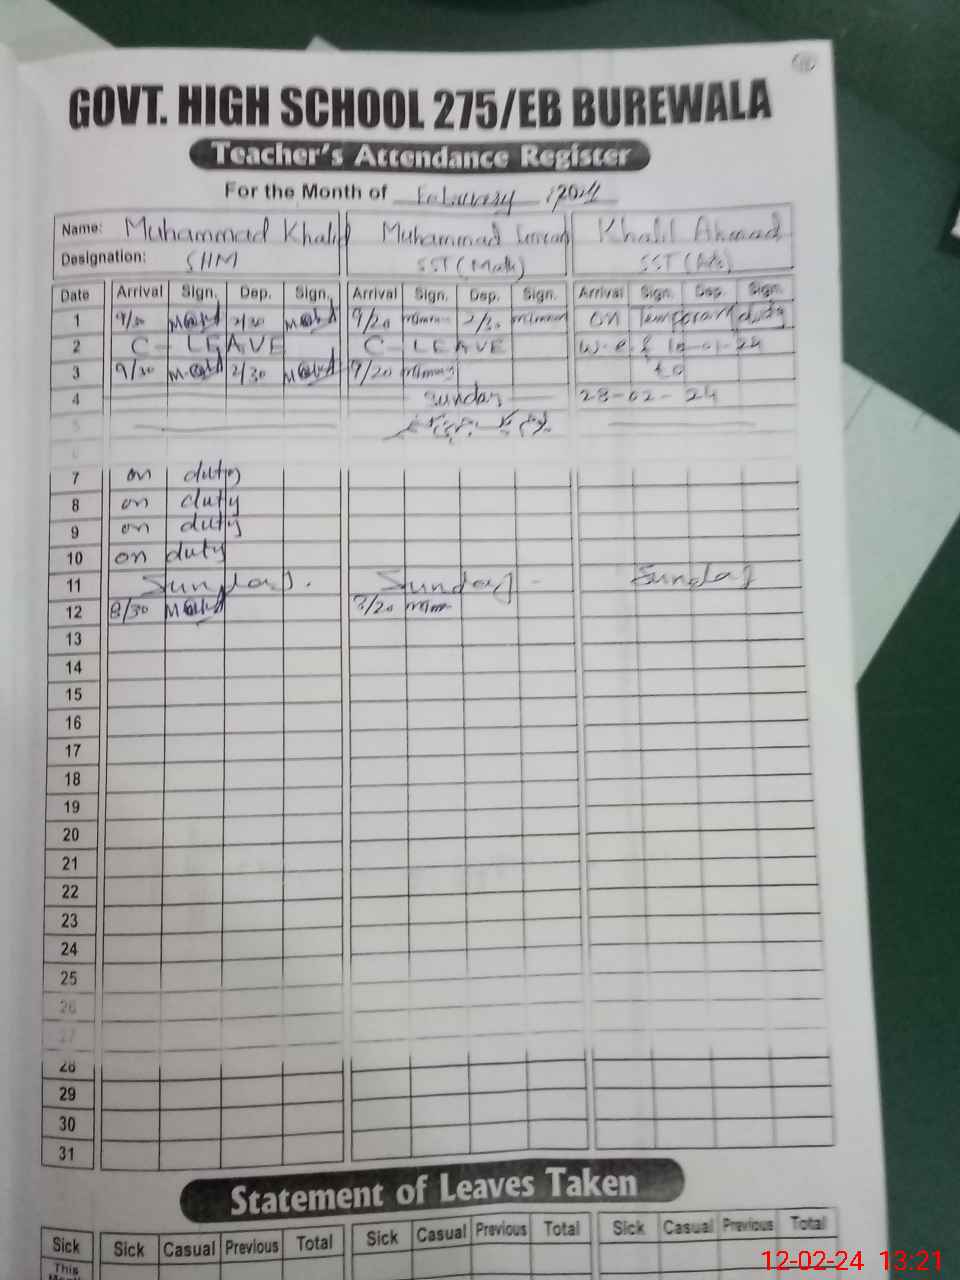 GOVT. HIGH SCHOOL 275/EB BUREWALA
Teacher's Attendance Register
For the Month of February 2024
Name: Muhammad Khalid Muhammad Imran Khalil Ahmad
Designation: SHM SST (Math) SST (Arts)
Date Arrival Sign. Dep. Sign. Arrival Sign. Dep. Sign. Arrival Sign. Dep. Sign.
1 9/30 2/30 9/20 2/30 on Temporary duty
2 C- LEAVE C- LEAVE w.e.f
3 9/30 2/30 9/20 to
4 Sunday 28-02-24
5
6
7 on duty
8 on duty
9 on duty
10 on duty
11 Sunday. Sunday - Sunday
12 8/30
13
14
15
16
17
18
19
20
21
22
23
24
25
26
27
28
29
30
31
Statement of Leaves Taken
Sick Sick Casual Previous Total Sick Casual Previous Total Sick Casual Previous Total
This
12-02-24 13:21